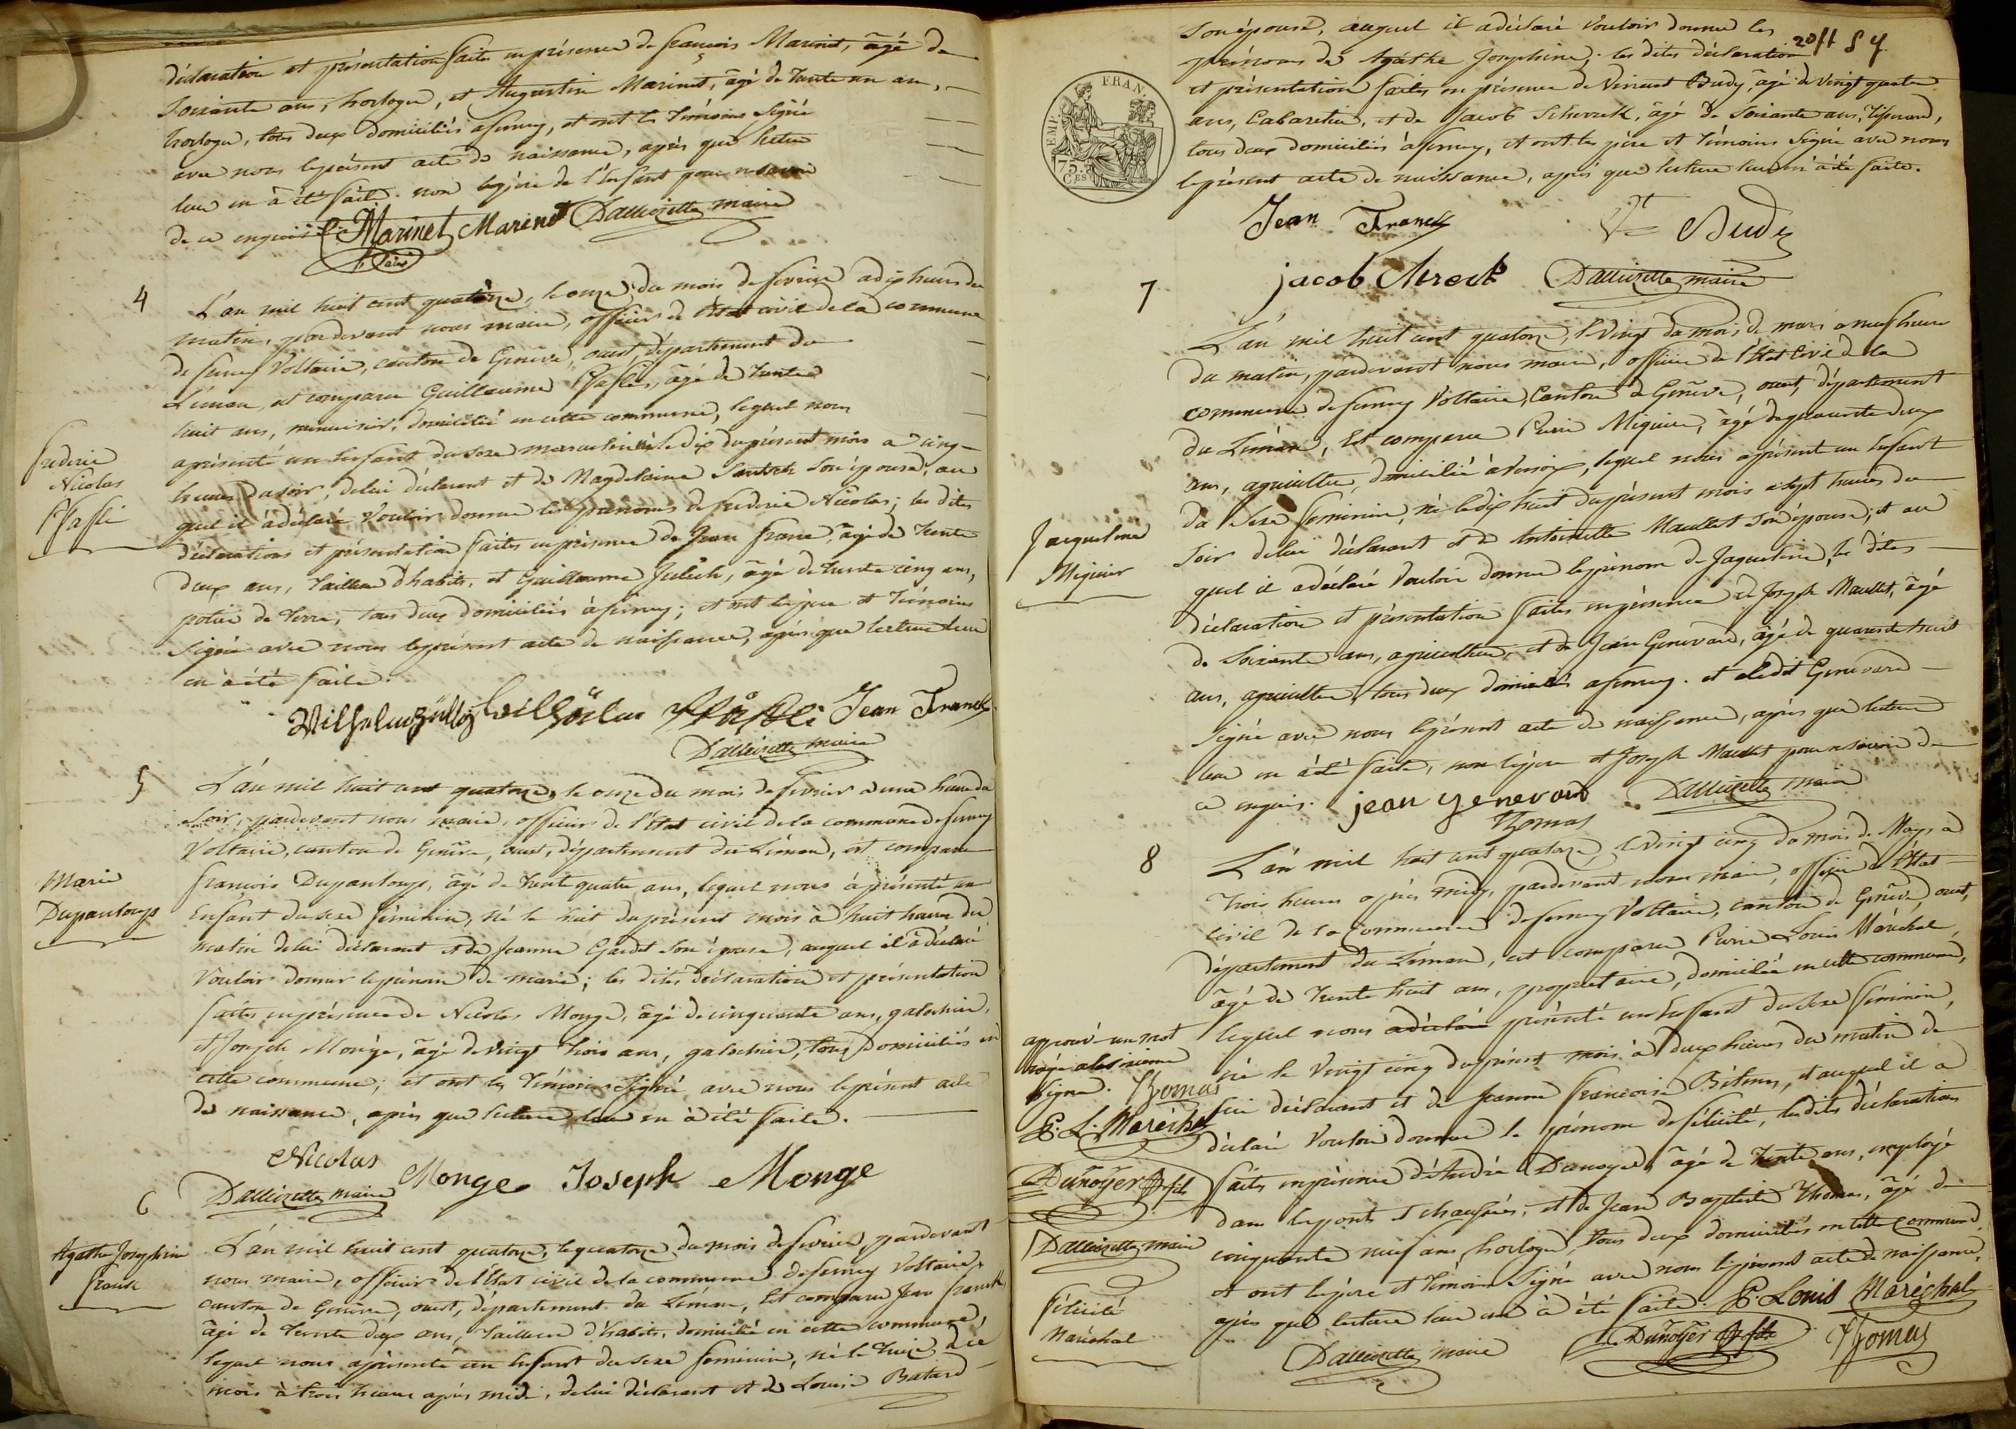 déclaration et présentation faite en présence de françois Marinet, âgé de
soixante ans, horloger, et Augustin Marinet, âgé de trente un an,
horloger, tous deux domiciliés à ferney, et ont les témoins signé
avec nous le présent acte de naissance, après que lecture
leur en à été faite. non le père de l'enfant pour ne savoir
de ce enquis
Marinet Marinet Dallizette maire
4
L'an mil huit cent quatorze, le onze du mois de fevrier a dix heures du
matin, pardevant nous maire, officier de l'état civil de la commune
de ferney Voltaire, canton de Genève, ouest, département du
Léman, est comparu Guillaume Pfaffli, âgé de trente
huit ans, menuisier, domicilié en cette commune, lequel nous
a présenté un enfant du sexe masculin né le dix du présent mois a cinq
heures du soir, de lui déclarant et de Magdelaine son épouse, au
quel il à déclaré vouloir donner les prénoms de frederic Nicolas; les dites
déclarations et présentation faites en présence de Jean franc, âgé de trente
deux ans, tailleur d'habits, et Guillaume âgé de trente cinq ans,
potier de terre, tous deux domiciliés à ferney; et ont le père et témoins
signé avec nous le présent acte de naissance, après que lecture leur
en à été faite.
frederic
Nicolas
Pfaffli
Jean Franck
Dallizette maire
5
L'an mil huit cent quatorze, le onze du mois de fevrier a une heure du
soir, pardevant nous maire, officier de l'état civil de la commune de ferney
Voltaire, canton de Genève, ouest, département du Léman, est comparu
françois Dupanloup, âgé de trente quatre ans, lequel nous à présenté un
Enfant du sexe féminin, né le huit du présent mois à huit heures du
matin de lui déclarant et de jeanne Gardet son épouse, auquel il à déclaré
Vouloir donner le prénom de marie; les dites déclaration et présentation
faites en présence de Nicolas Monge, âgé de cinquante ans, galochier,
et Joseph Monge, âgé de vingt trois ans, galochier, tous domiciliés en
cette commune; et ont les témoins signé avec nous le présent acte
de naissance, après que lecture leur en à été faite.
Marie
Dupanloup
Nicolas Monge Joseph Monge
Dallizette maire
6
L'an mil huit cent quatorze, le quatorze du mois de fevrier, pardevant
nous maire, officier de l'état civil de la commune de ferney Voltaire,
canton de Genève, ouest, département du Léman, est comparu Jean franck
âgé de trente deux ans, tailleur d'habits, domicilié en cette commune,
lequel nous a présenté un enfant du sexe feminin, né le treize
mois à trois heures après midi, de lui déclarant et de Louise Batard
Agathe Josephine
franck
son épouse, auquel il a déclaré vouloir donner les
prénoms de Agathe Josephine; les dites déclaration
et présentation faites en présence de Vincent Budy âgé de vingt quatre
ans, Cabaretier, et de Jacob âgé de soixante ans, tisserand,
tous deux domiciliés à ferney, et ont les père et témoins signé avec nous
le présent acte de naissance, après que lecture leur en à été faite.
EMP. FRAN.
75 Ces
Jean Franck
Budy
jacob
Dallizette maire
7
L'an mil huit cent quatorze, le vingt du mois de mars a neuf heures
du matin, pardevant nous maire, officier de l'état civil de la
commune de ferney Voltaire, Canton de Genève, ouest, département
du Léman, est comparu Pierre Miguier, âgé de quarante deux
ans, agriculteur, domicilié à Versoix, lequel nous a présenté un enfant
du sexe feminin, né le dix huit du présent mois a sept heures du
soir de lui déclarant et de Antoinette Maullet son épouse; et au
quel il a déclaré vouloir donner le prénom de Jaqueline, les dites
déclaration et présentation faites en présence de Joseph Maullet, âgé
de soixante ans, agriculteur, et de Jean Genevard, âgé de quarante huit
ans, agriculteur, tous deux domiciliés à ferney. et le dit Genevard
signé avec nous le présent acte de naissance, après que lecture
leur en a été faite, non le père et Joseph Maullet pour ne savoir de
ce enquis.
Jaqueline
Miguier
jean genevard Dallizette maire
8
Thomas
L'an mil huit cent quatorze, le vingt cinq du mois de Mars, à
trois heures après midy, pardevant nous maire, officier de l'état
civil de la commune de ferney Voltaire, canton de Genève, ouest,
département du Léman, est comparu Pierre Louis Maréchal,
âgé de trente huit ans, propriétaire, domicilié en cette commune,
lequel nous a déclaré présenté un enfant du sexe féminin,
né le vingt cinq du présent mois à deux heures du matin de
lui déclarant et de Jeanne françoise et auquel il a
déclaré vouloir donner le prénom de félicité, les dites déclarations
faites en présence d'André Dunoyer, âgé de trente ans, employé
dans les ponts et chaussées, et de Jean Baptiste Thomas, âgé de
cinquante neuf ans, horloger, tous deux domiciliés en cette commune,
et ont le père et témoins signé avec nous le présent acte de naissance,
après que lecture leur en à été faite.
approuvé un mot
signé.
Thomas
P. L. Maréchal
Dunoyer fils
Dallizette maire
félicité
Maréchal
P. Louis Maréchal
Dallizette maire
Dunoyer fils
Thomas